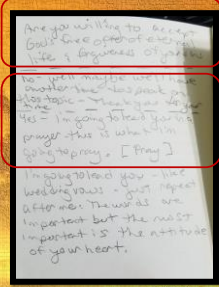 Are you willing to accept
God's free of eternal
life - forgiveness of your sins
No - well maybe we'll have
another time to speak on
this topic - Thank you for your
time
Yes - I'm going to lead you in a
prayer - this is what I'm
going to pray. [Pray]
I'm going to lead you - like
wedding vows - just repeat
after me. The words are
important but the most
important is the attitude
of your heart.